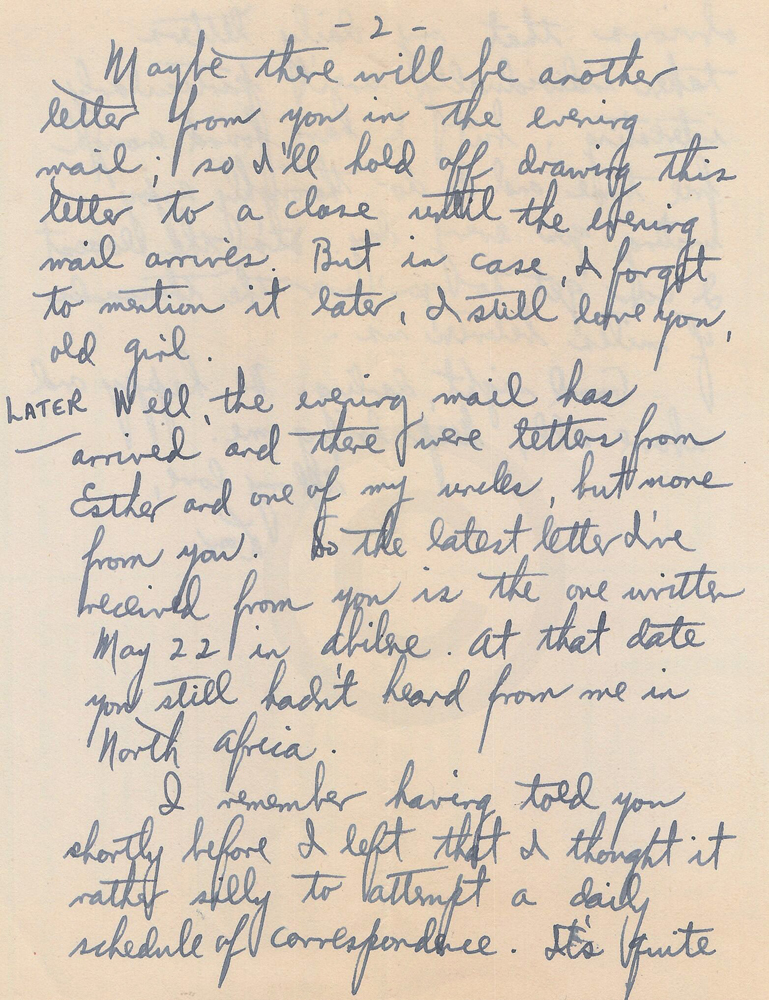 - 2 -
Maybe there will be another
letter from you in the evening
mail; so I'll hold off drawing this
letter to a close until the evening
mail arrives. But in case, I forget
to mention it later, I still love you,
old girl.
LATER Well, the evening mail has
arrived and there were letters from
Esther and one of my uncles, but none
from you. So the latest letter I've
received from you is the one written
May 22 in Abilene. At that date
you still hadn't heard from me in
North Africa.
I remember having told you
shortly before I left that I thought it
rather silly to attempt a daily
schedule of correspondence. It's quite